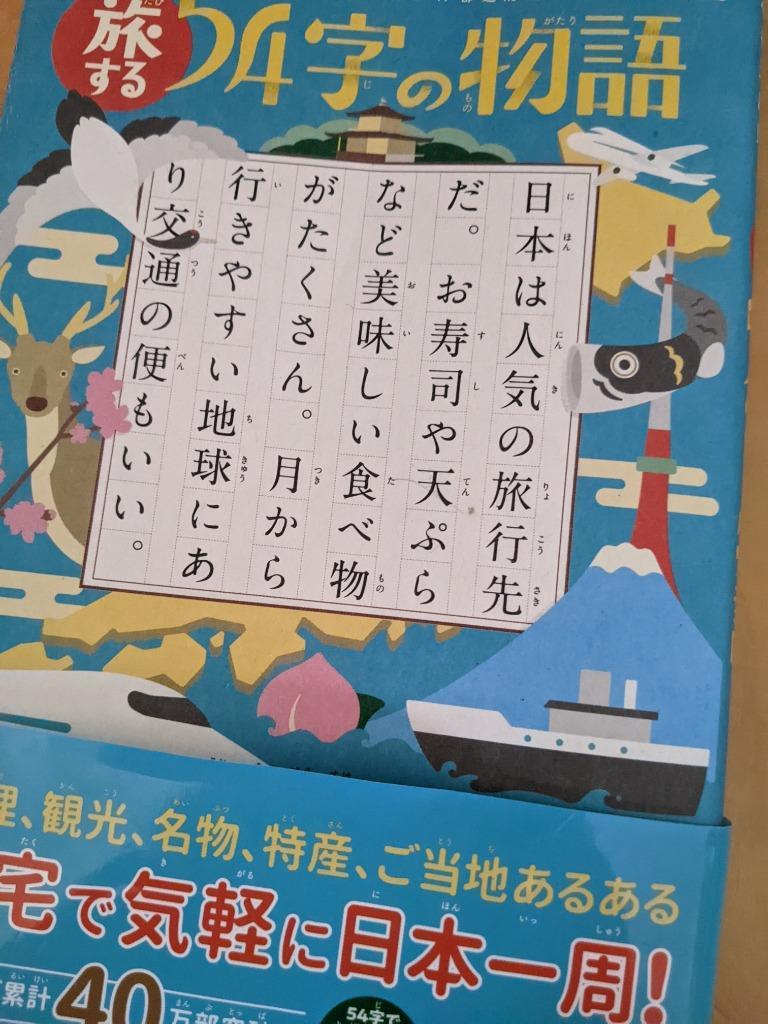 旅する
54字の物語
日本は人気の旅行先
だ。お寿司や天ぷら
など美味しい食べ物
がたくさん。月から
行きやすい地球にあ
り交通の便もいい。
理、観光、名物、特産、ご当地あるある
宅で気軽に日本一周!
累計40万部突破
54字で